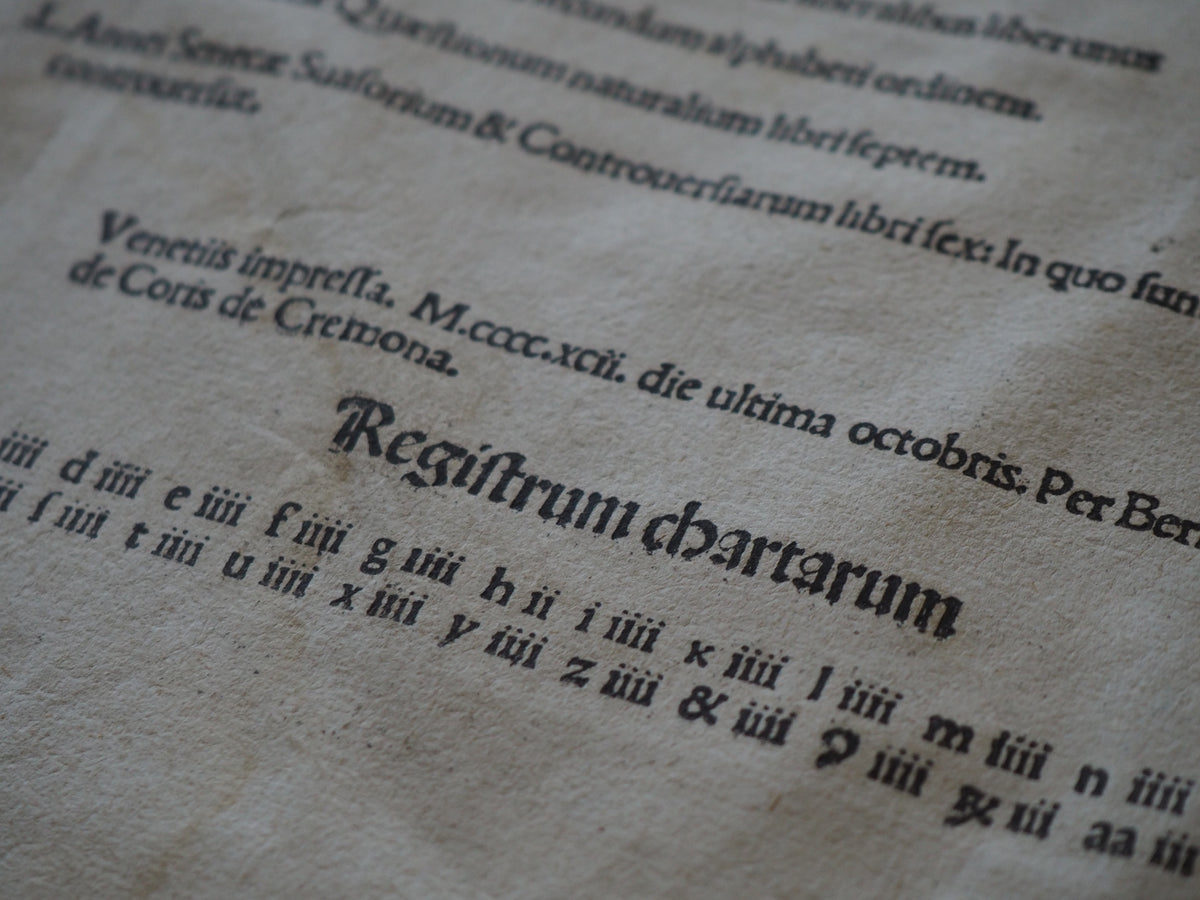 liber unus
secundum alphabeti ordinem.
Quæſtionum naturalium libri ſeptem.
L. Annei Senecæ Suaſorium & Controuerſiarum libri ſex: In quo ſun
Venetiis impreſſa. M.cccc.xcii. die ultima octobris. Per Ber
de Coris de Cremona.
Regiſtrum chartarum
iiii d iiii e iiii f iiii g iiii h ii i iiii k iiii l iiii m iiii n iiii
ſ iiii t iiii u iiii x iiii y iiii z iiii & iiii ꝯ iiii ꝶ iii aa iii